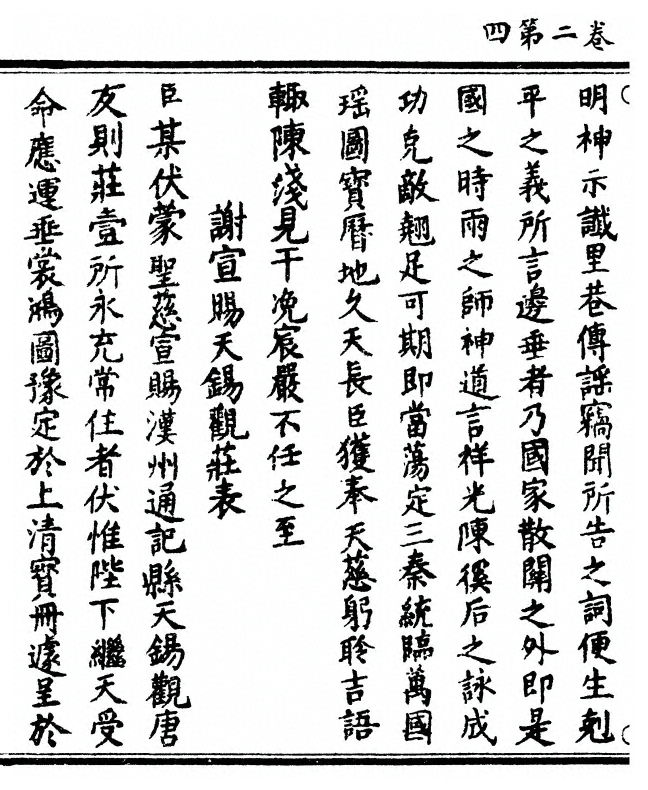 卷二第四
明神示讖里巷傳謡竊聞所告之詞便生剋
平之義所言邊垂者乃國家散關之外即是
國之時雨之師神道言祥光陳徯后之詠成
功克敵翹足可期即當蕩定三秦統臨萬國
瑶圖寶曆地久天長臣獲奉天慈躬聆吉語
輙陳淺見干冕扆嚴不任之至
謝宣賜天錫觀莊表
臣某伏蒙聖慈宣賜漢州通記縣天錫觀唐
友則莊壹所永充常住者伏惟陛下繼天受
命應運垂裳鴻圖豫定於上清寶冊遽呈於